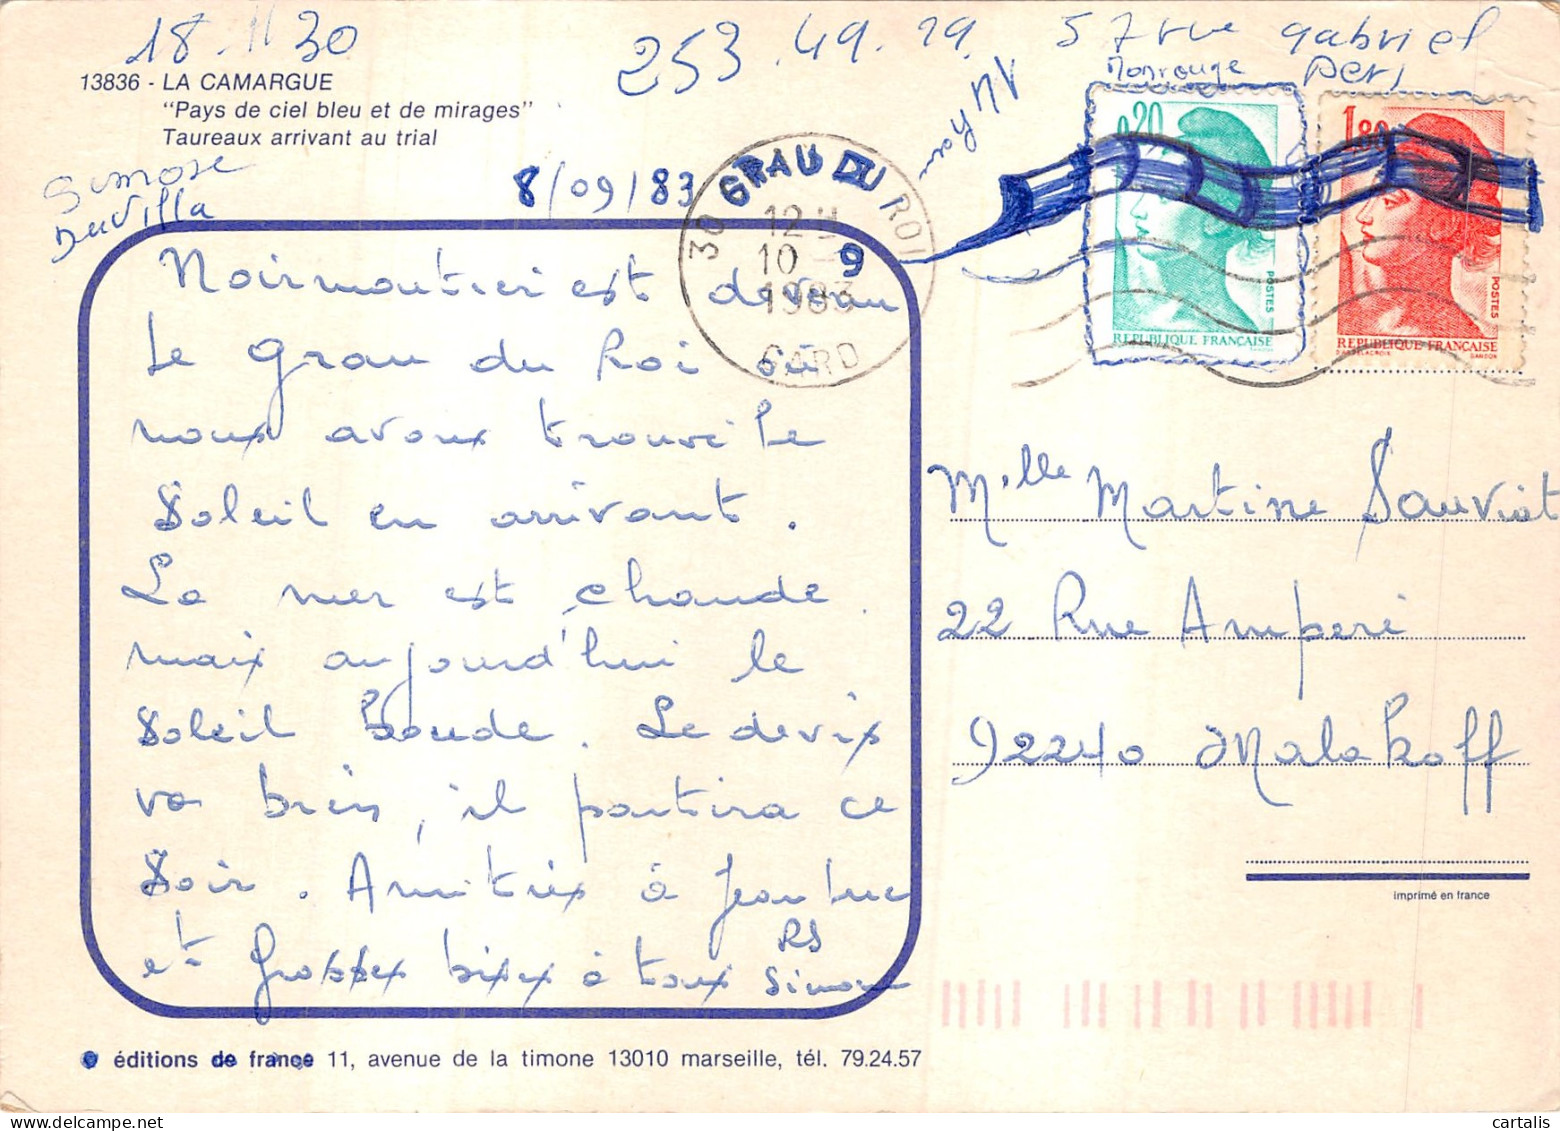 18 H 30
253.49.29
57 rue gabriel
peri
Monrouge
13836 - LA CAMARGUE
"Pays de ciel bleu et de mirages"
Taureaux arrivant au trial
Simone
8/09/83
30 GRAU DU ROI
12 H
10 9
1983
GARD
0,20
POSTES
REPUBLIQUE FRANÇAISE
1,80
POSTES
REPUBLIQUE FRANÇAISE
Noirmoutier est devenu
le Grau du Roi où
nous avons trouvé le
Soleil en arrivant.
La mer est chaude
mais aujourd'hui le
Soleil boude. Le devix
va bien, il partira ce
Soir. Amitiés à Jean Luc
et grosses bises à tous
RS
Simone
Melle Martine Sauviat
22 Rue Ampère
92240 Malakoff
imprimé en france
éditions de france 11, avenue de la timone 13010 marseille, tél. 79.24.57
cartalis